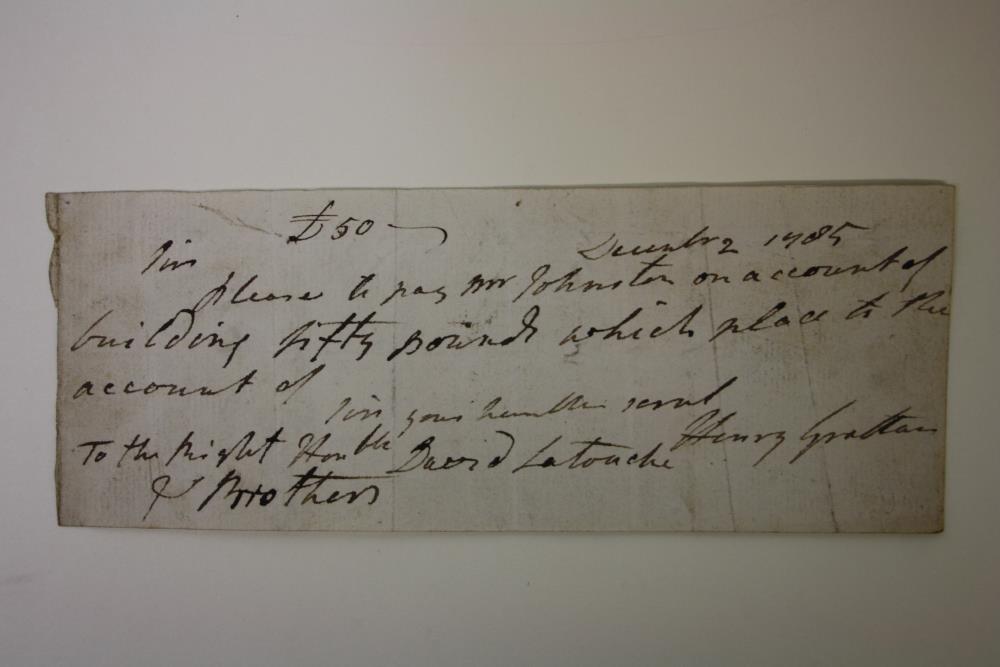 £50
December 2 1785
Sir
Please to pay Mr Johnston on account of
building fifty pounds which place to the
account of
Sir your humble servt
Henry Grattan
To the Right Honble David Latouche
& Brothers